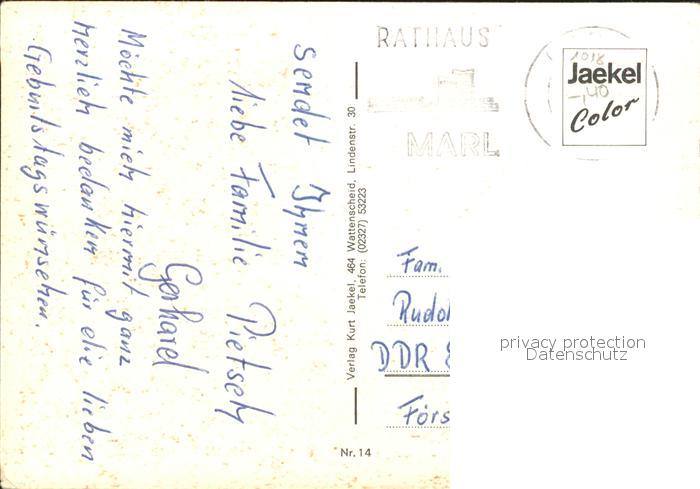 sendet Ihnen
liebe Familie Pietsch
Gerhard
Möchte mich hiermit ganz
herzlich bedanken für die lieben
Geburtstagswünschen.
Verlag Kurt Jaekel, 464 Wattenscheid, Lindenstr. 30
Telefon: (02327) 53223
Nr. 14
RATHAUS
MARL
1018
Jaekel
-,40
Color
Fam.
Rudol
DDR 8
Förs
privacy protection
Datenschutz